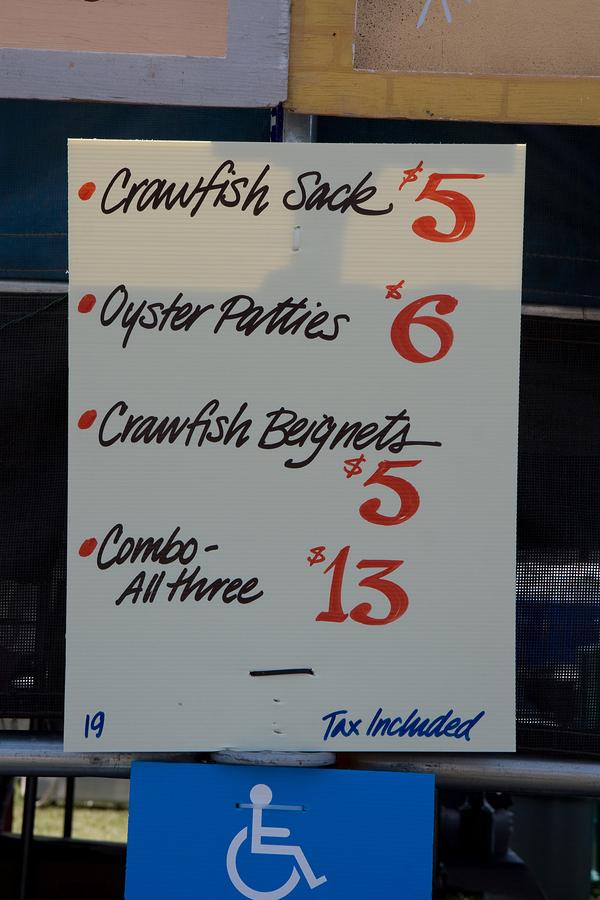 • Crawfish Sack $5
• Oyster Patties $6
• Crawfish Beignets
$5
• Combo-
All three $13
19 Tax Included